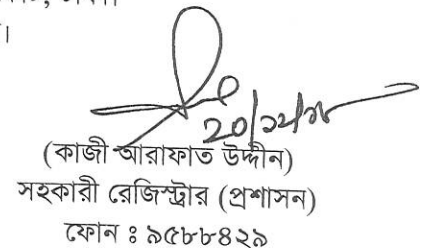 ।
২০/১২/১৮
(কাজী আরাফাত উদ্দীন)
সহকারী রেজিস্ট্রার (প্রশাসন)
ফোন ঃ ৯৫৮৮৪২৯